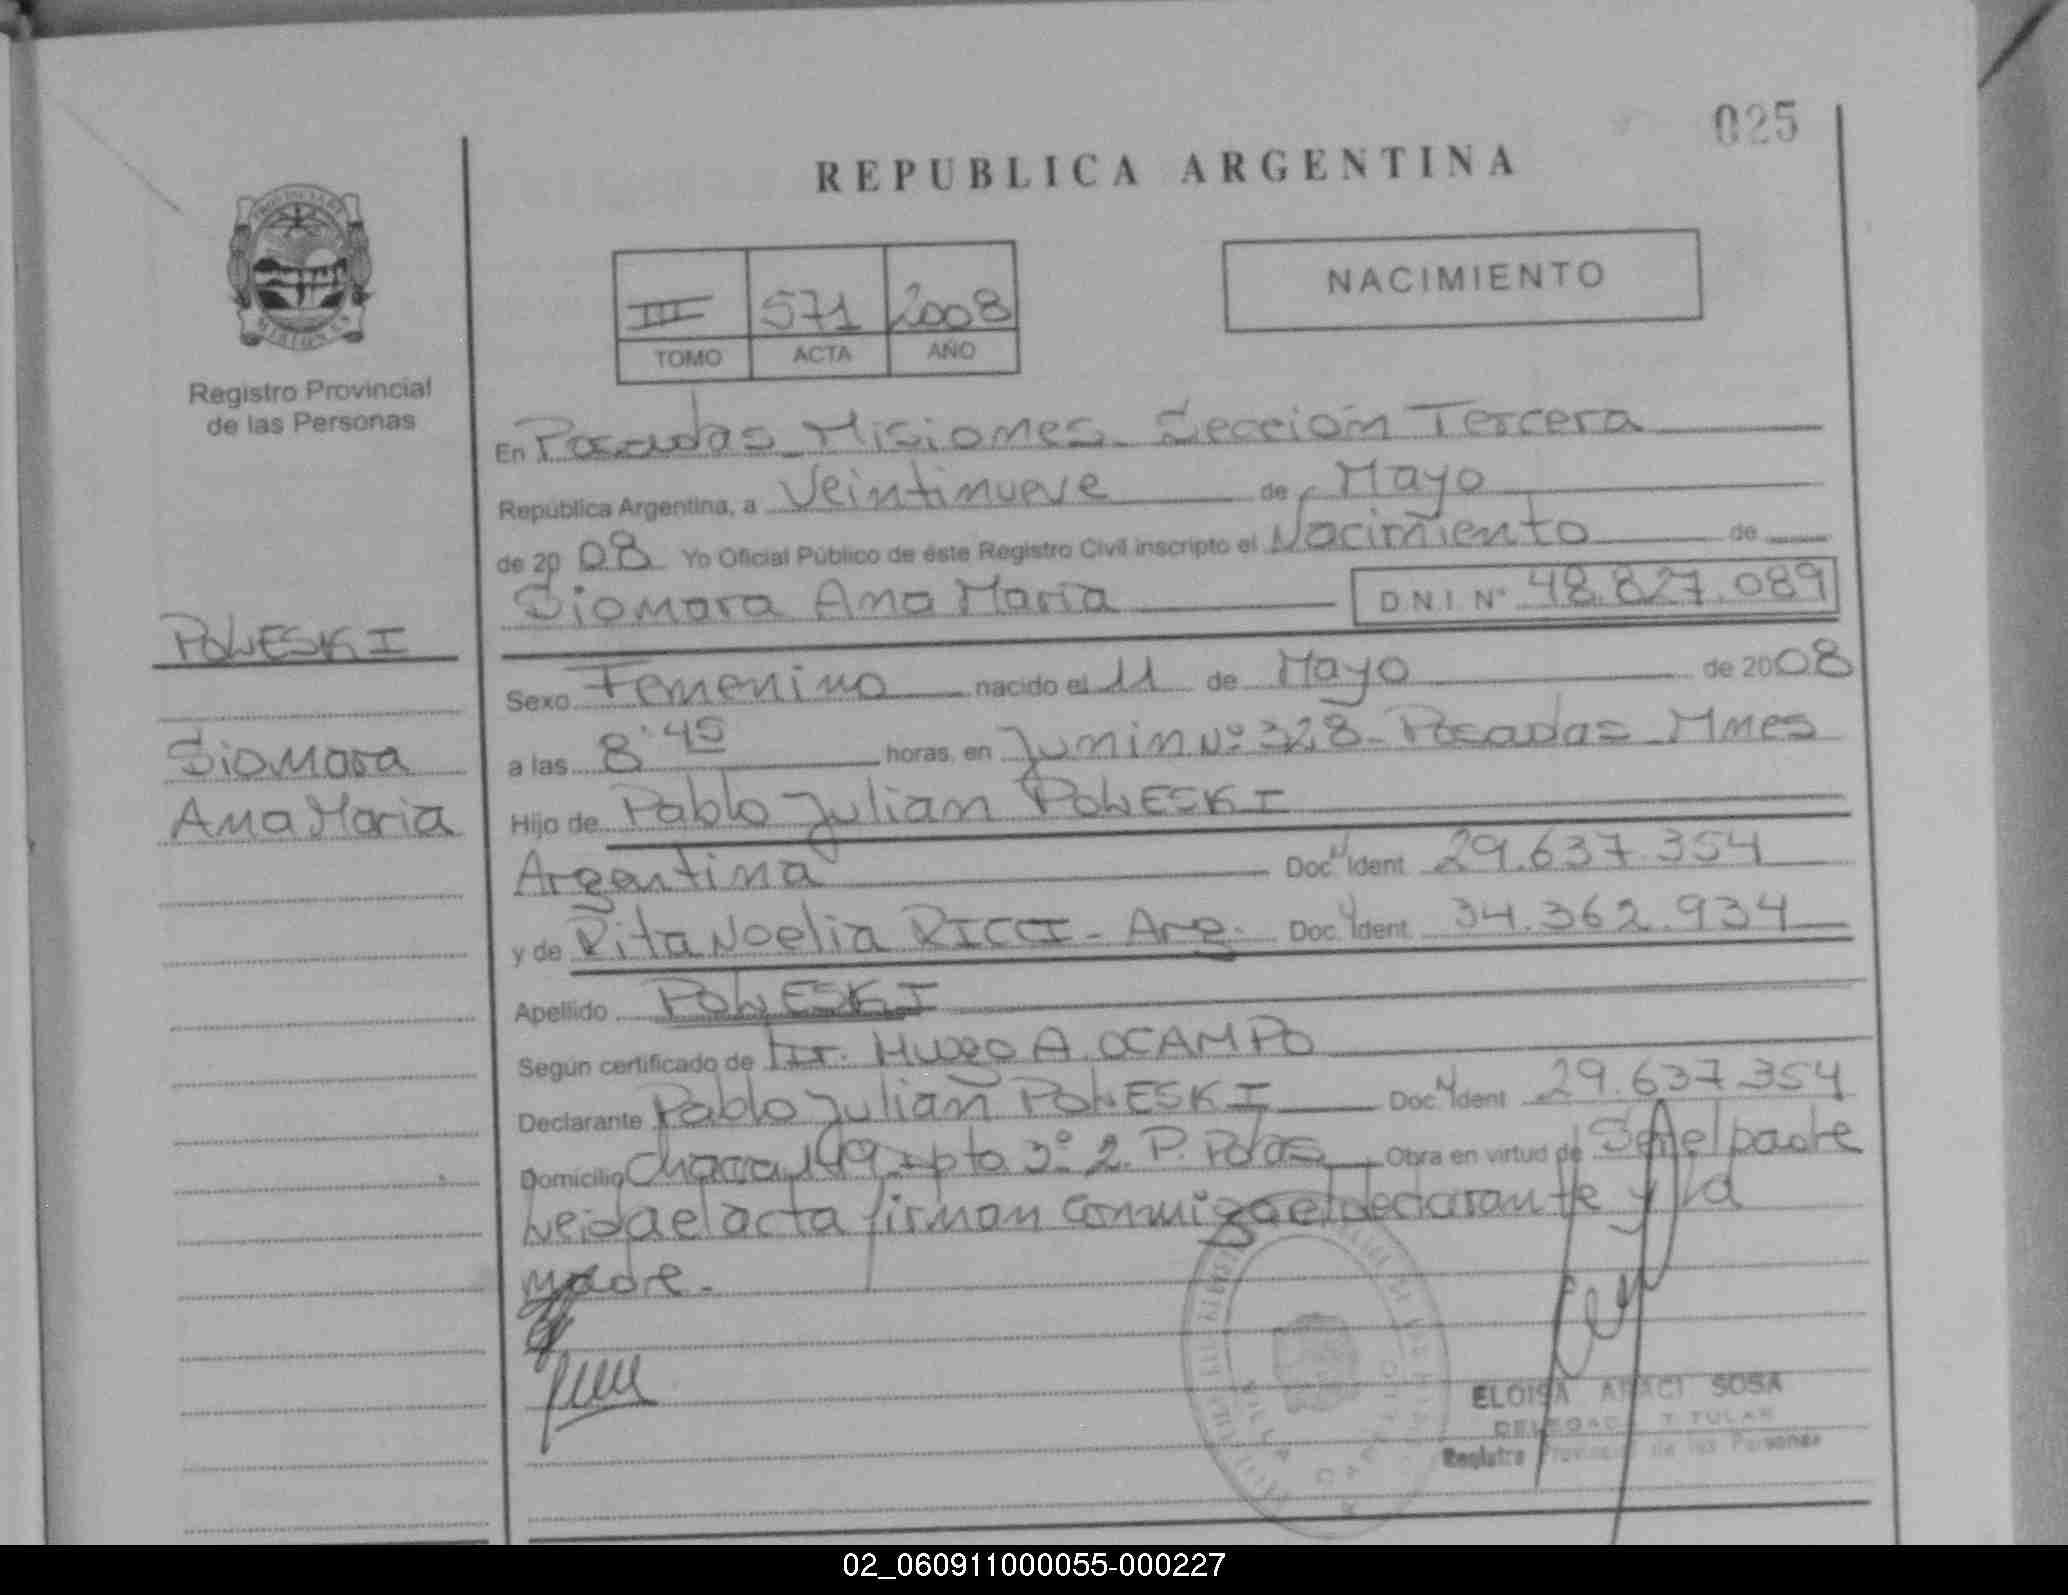 025
REPUBLICA ARGENTINA
NACIMIENTO
III 571 2008
TOMO ACTA AÑO
Registro Provincial
de las Personas
POWESKI
Siomara
Ana Maria
En Posadas Misiones Sección Tercera
República Argentina, a Veintinueve de Mayo
de 2008 Yo Oficial Público de éste Registro Civil inscripto el Nacimiento de
Siomara Ana Maria D.N.I. Nº 48.827.089
Sexo Femenino nacido el 11 de Mayo de 2008
a las 8'45 horas, en Junin Nº 328 - Posadas Mnes
Hijo de Pablo Julian POWESKI
Argentina Doc. Ident 29.637.354
y de Rita Noelia RICCI - Arg. Doc. Ident 34.362.934
Apellido POWESKI
Según certificado de Dr. HUGO A. OCAMPO
Declarante Pablo Julián POWESKI Doc. Ident 29.637.354
Domicilio Chacra 149 Dpto 3º 2. P. Pdas Obra en virtud de Ser el padre
Leida el acta firman conmigo el declarante y la
madre.
ELOISA ARACI SOSA
DELEGADA TITULAR
Registro Provincial de las Personas
02_060911000055-000227